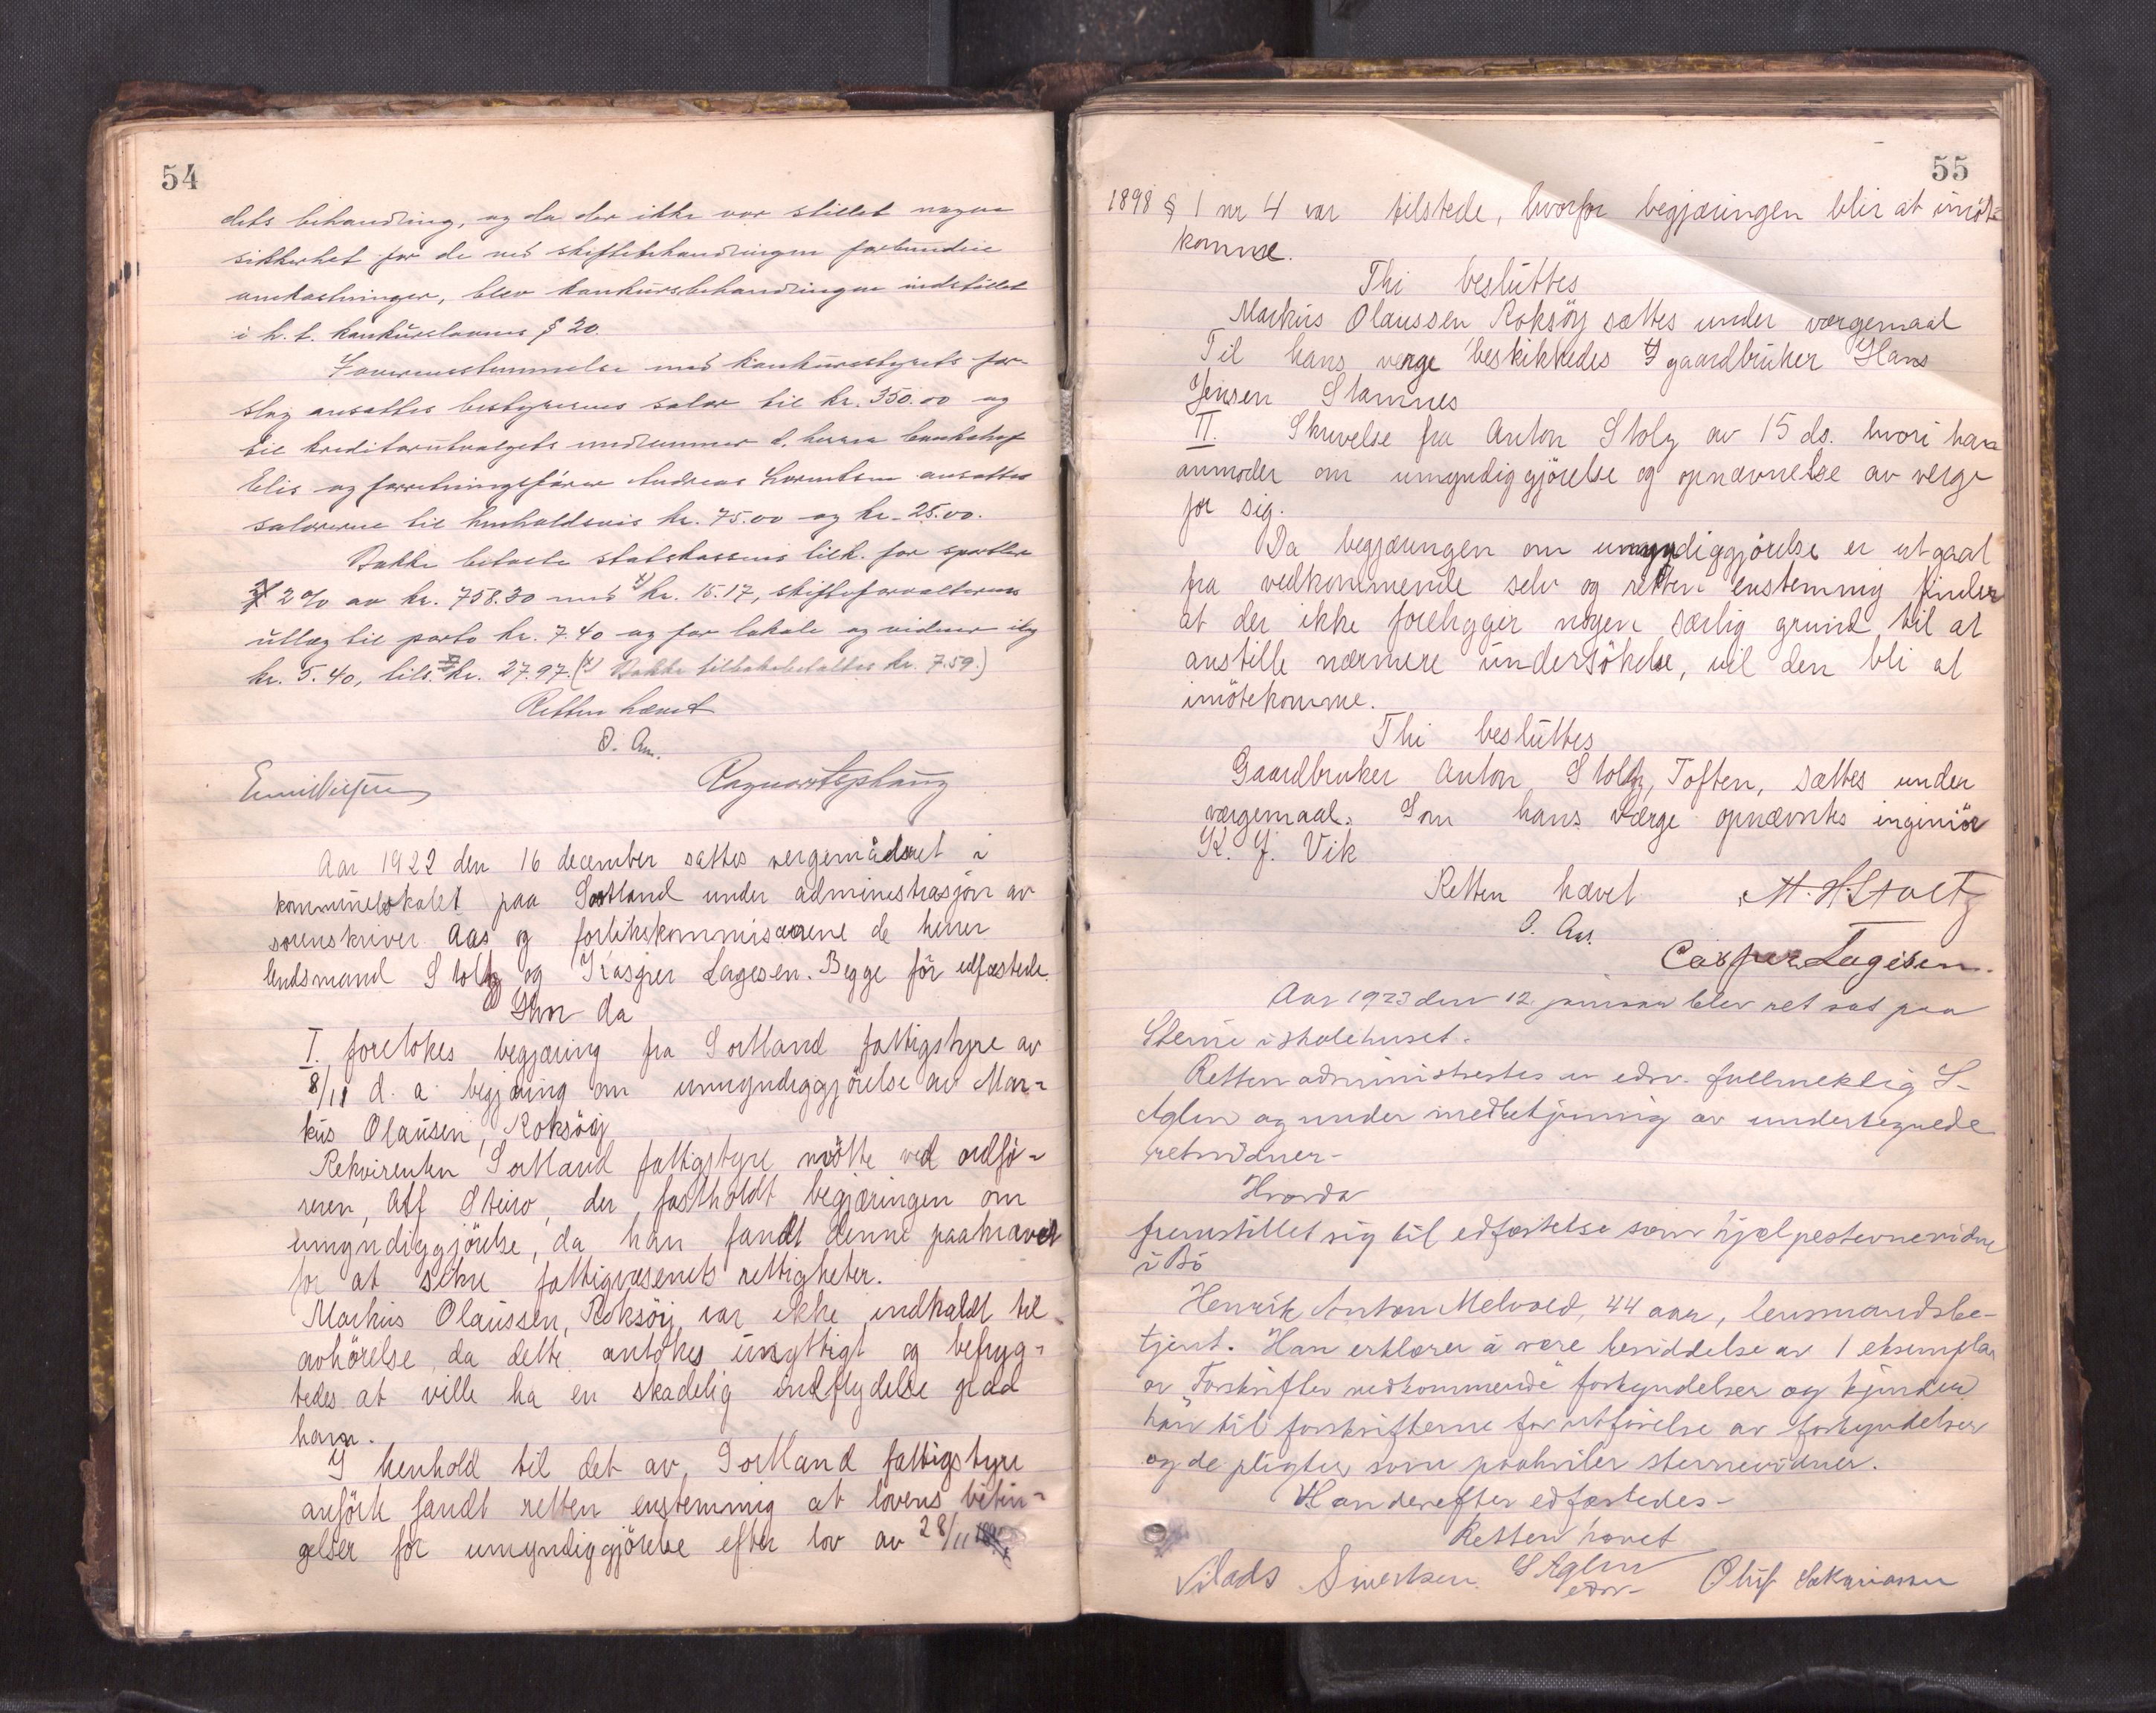 54
dets behandling, og da der ikke var stillet nogen
sikkerhet for de med skiftebehandlingen forbundne
omkostninger, blev konkursbehandlingen indstillet
i h. t. konkurslovens § 20.
I overensstemmelse med konkursstyrets for-
slag ansattes bestyrerens salar til kr. 350.00 og
til kreditorutvalgets medlemmer d. herrer bankchef
Elis og forretningsförer Andreas Lorentsen ansattes
salærerne til henholdsvis kr. 75.00 og kr. 25.00.
Bakke betalte statskassens tilk. for sportler
2 % av kr. 758.30 med x) kr. 15.17, skifteforvalterens
utlæg til porto kr. 7.40 og for lokale og vidner
kr. 5.40, tils. kr. 27.97. (x) Bakke tilbakebetaltes kr. 7.59.)
Retten hævet
O. Aas.
Aar 1922 den 16 december sattes vergemådsret i
kommunelokalet paa Sortland under administrasjon av
sorenskriver Aas og forlikskommisærene de herrer
lendsmand Stoltz og Kasper Lagesen. Begge för edfæstede.
Hvor da
I. foretokes begjæring fra Sortland fattigstyre av
8/11 d. a. begjæring om umyndiggjörelse av Mar-
kus Olausen, Roksöy
Rekvirenten Sortland fattigstyre mötte ved ordfö-
reren, Alf Steiro, der fastholdt begjæringen om
umyndiggjörelse, da han fandt denne paakrævet
for at sikre fattigvæsenets rettigheter.
Markus Olaussen, Roksöy var ikke indkaldt til
avhörelse da dette antokes unyttigt og befryg-
tedes at ville ha en skadelig indflydelse paa
ham.
I henhold til det av Sortland fattigstyre
anförte fandt retten enstemmig at lovens betin-
gelser for umyndiggjörelse efter lov av 28/11
55
1898 § 1 nr 4 var tilstede, hvorfor begjæringen blir at imöte
komme.
Thi besluttes
Markus Olaussen Roksöy sættes under værgemaal
Til hans verge beskikkedes gaardbruker Hans
Jensen Stamnes
II. Skrivelse fra Anton Stolz av 15 ds. hvori han
anmoder om umyndiggjörelse og opnævnelse av verge
for sig.
Da begjæringen om umyndiggjörelse er utgaat
fra vedkommende selv og retten enstemmig finder
at der ikke foreligger nogen særlig grund til at
anstille nærmere undersökelse, vil den bli at
imötekomme.
Thi besluttes
Gaardbruker Anton Stoltz, Toften, sættes under
værgemaal. Som hans værge opnævntes ingeniör
K. J. Vik
Retten hævet M. H. Stoltz
O. Aas.
Casper Lagesen.
Aar 1923 den 12. januar blev ret sat paa
Steine i skolehuset.
Retten administrertes av edsv. fullmektig S.
Aglen og under medbetjening av undertegnede
retsvidner-
Hvorda
fremstillet sig til edfæstelse som hjælpestevnevidne
i Bö
Henrik Anton Melvold, 44 aar, lensmandsbe-
tjent. Han erklærer å være besiddelse av 1 eksemplar
av "Forskrifter vedkommende forkyndelser og kjender
han til forskrifterne for utförelse av forkyndelser
og de pligter som paahviler stevnevidner.
Han derefter edfæstedes-
Retten hævet
Mads Sivertsen. S Aglen Oluf Sakariassen
edsv-